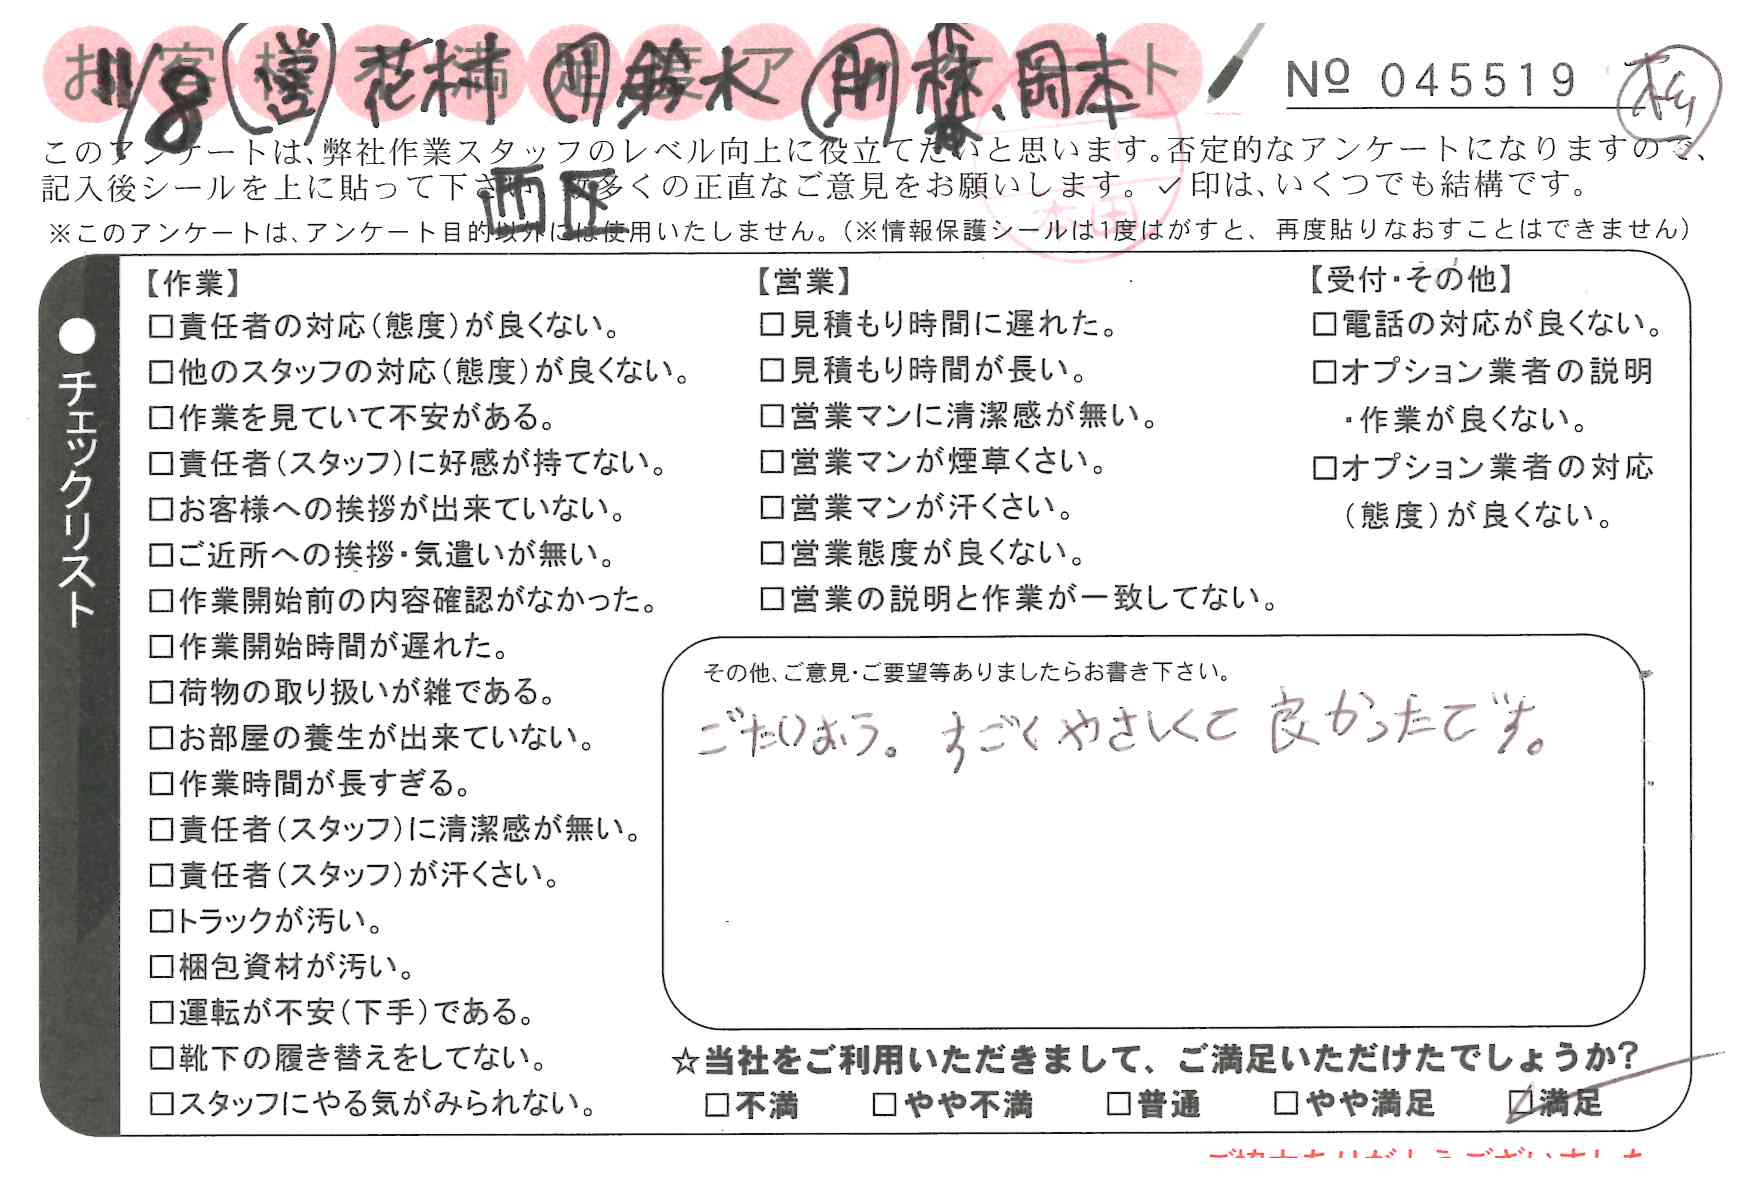 お客様不満足度アンケート
11/8 営 花村 鈴木 林、岡本
西区
№ 045519
このアンケートは、弊社作業スタッフのレベル向上に役立てたいと思います。否定的なアンケートになりますので、
記入後シールを上に貼って下さい。数多くの正直なご意見をお願いします。✓印は、いくつでも結構です。
※このアンケートは、アンケート目的以外には使用いたしません。（※情報保護シールは1度はがすと、再度貼りなおすことはできません）
●チェックリスト
【作業】
□責任者の対応（態度）が良くない。
□他のスタッフの対応（態度）が良くない。
□作業を見ていて不安がある。
□責任者（スタッフ）に好感が持てない。
□お客様への挨拶が出来ていない。
□ご近所への挨拶・気遣いが無い。
□作業開始前の内容確認がなかった。
□作業開始時間が遅れた。
□荷物の取り扱いが雑である。
□お部屋の養生が出来ていない。
□作業時間が長すぎる。
□責任者（スタッフ）に清潔感が無い。
□責任者（スタッフ）が汗くさい。
□トラックが汚い。
□梱包資材が汚い。
□運転が不安（下手）である。
□靴下の履き替えをしてない。
□スタッフにやる気がみられない。
【営業】
□見積もり時間に遅れた。
□見積もり時間が長い。
□営業マンに清潔感が無い。
□営業マンが煙草くさい。
□営業マンが汗くさい。
□営業態度が良くない。
□営業の説明と作業が一致してない。
【受付・その他】
□電話の対応が良くない。
□オプション業者の説明
・作業が良くない。
□オプション業者の対応
（態度）が良くない。
その他、ご意見・ご要望等ありましたらお書き下さい。
ごたいおう。すごくやさしくて良かったです。
☆当社をご利用いただきまして、ご満足いただけたでしょうか？
□不満 □やや不満 □普通 □やや満足 ☑満足
ご協力ありがとうございました